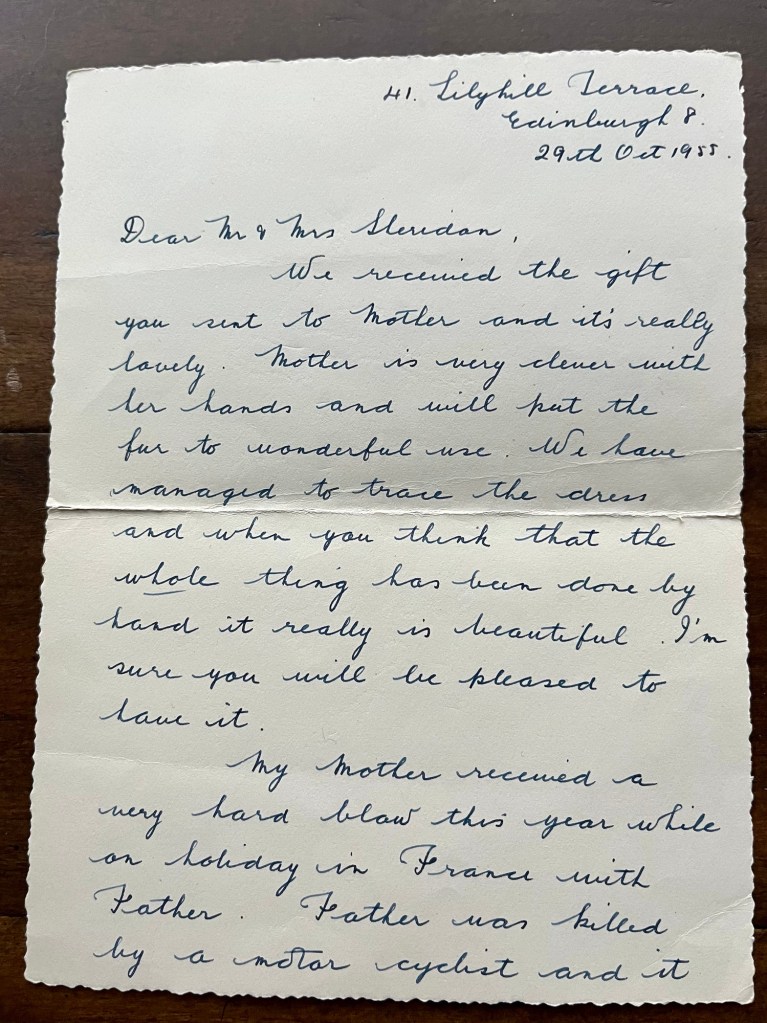 41. Lilyhill Terrace,
Edinburgh 8.
29th Oct 1955.
Dear Mr & Mrs Sheridan,
We received the gift
you sent to Mother and it's really
lovely. Mother is very clever with
her hands and will put the
fur to wonderful use. We have
managed to trace the dress
and when you think that the
whole thing has been done by
hand it really is beautiful. I'm
sure you will be pleased to
have it.
My Mother received a
very hard blow this year while
on holiday in France with
Father. Father was killed
by a motor cyclist and it